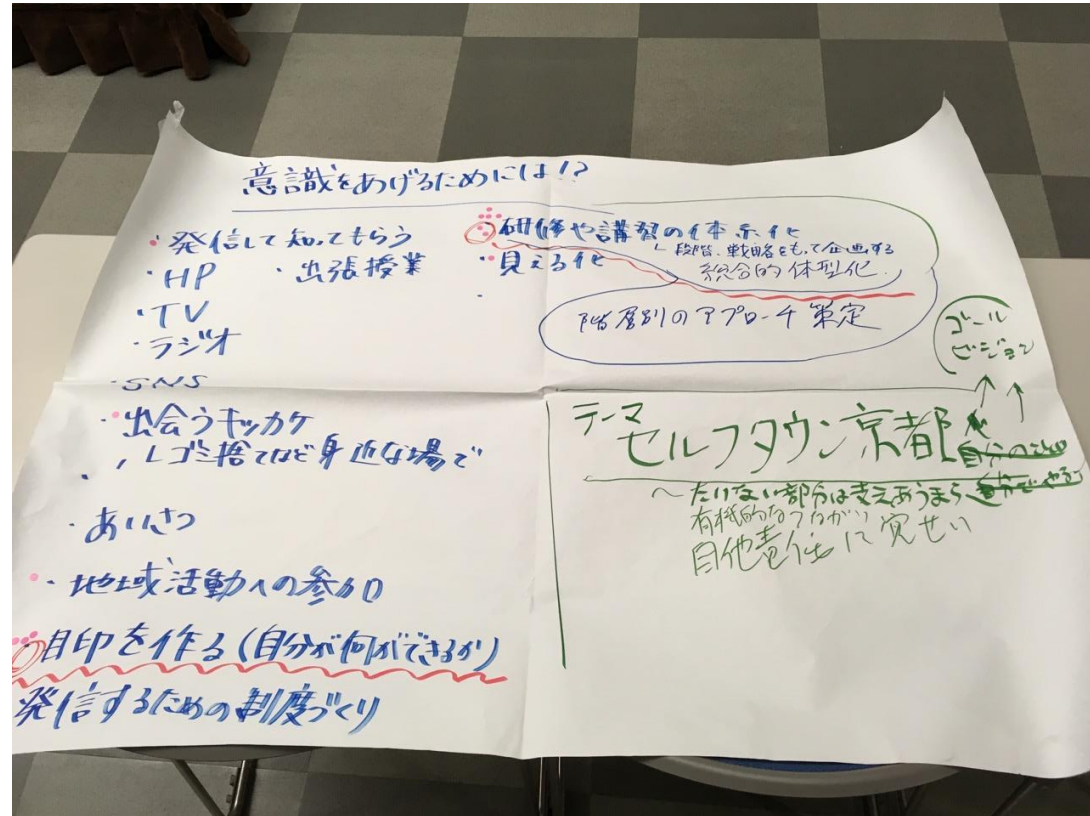 意識をあげるためには!?
・発信して知ってもらう
・HP ・出張授業
・TV
・ラジオ
・SNS
・出会うキッカケ
、Lゴミ捨てなど身近な場で
・あいさつ
・地域活動への参加
・目印を作る(自分が何ができるか)
発信するための制度づくり
・研修や講習の体系化
L 段階、戦略をもって企画する
総合的体型化
・見える化
階層別のアプローチ策定
ゴール
ビジョン
テーマ
セルフタウン京都
自分のことは
自分でやる
〜たりない部分は支えあうまち
有機的なつながり
自他責任に